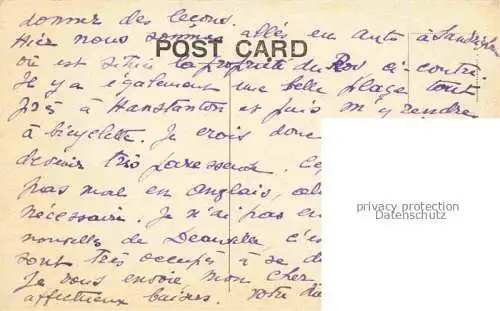 donner des leçons.
Hier nous sommes allés en auto à Sandrigham
POST CARD
où est située la propriété du Roi ci-contre.
Il y a également une belle plage tout
près à Hunstanton et puis m'y rendre
à bicyclette. Je crois donc
devoir très paresseuse.
pas mal en anglais,
nécessaire. Je n'ai pas en
nouvelles de Deauville, c'es
sont très occupés à se d
Je vous envoie, mon cher
affectueux baisers. Votre
privacy protection
Datenschutz